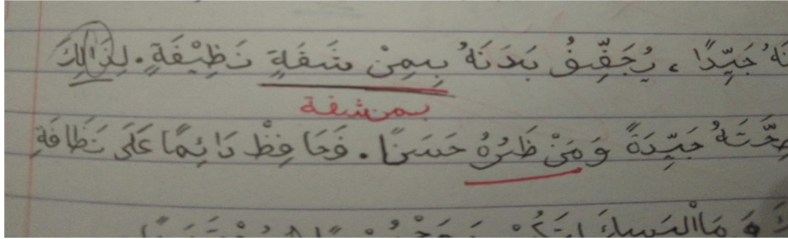 نَهُ جَيِّدًا ، يُجَفِّفُ بَدَنَهُ بِمِنْ شَفَةٍ نَظِيفَةٍ. لِذَالِكَ
بمنشفة
صِحَّتَهُ جَيِّدَةً وَمَنْ ظَرُهُ حَسَنًا. فَحَافِظْ دَائِمًا عَلَى نَظَافَةِ